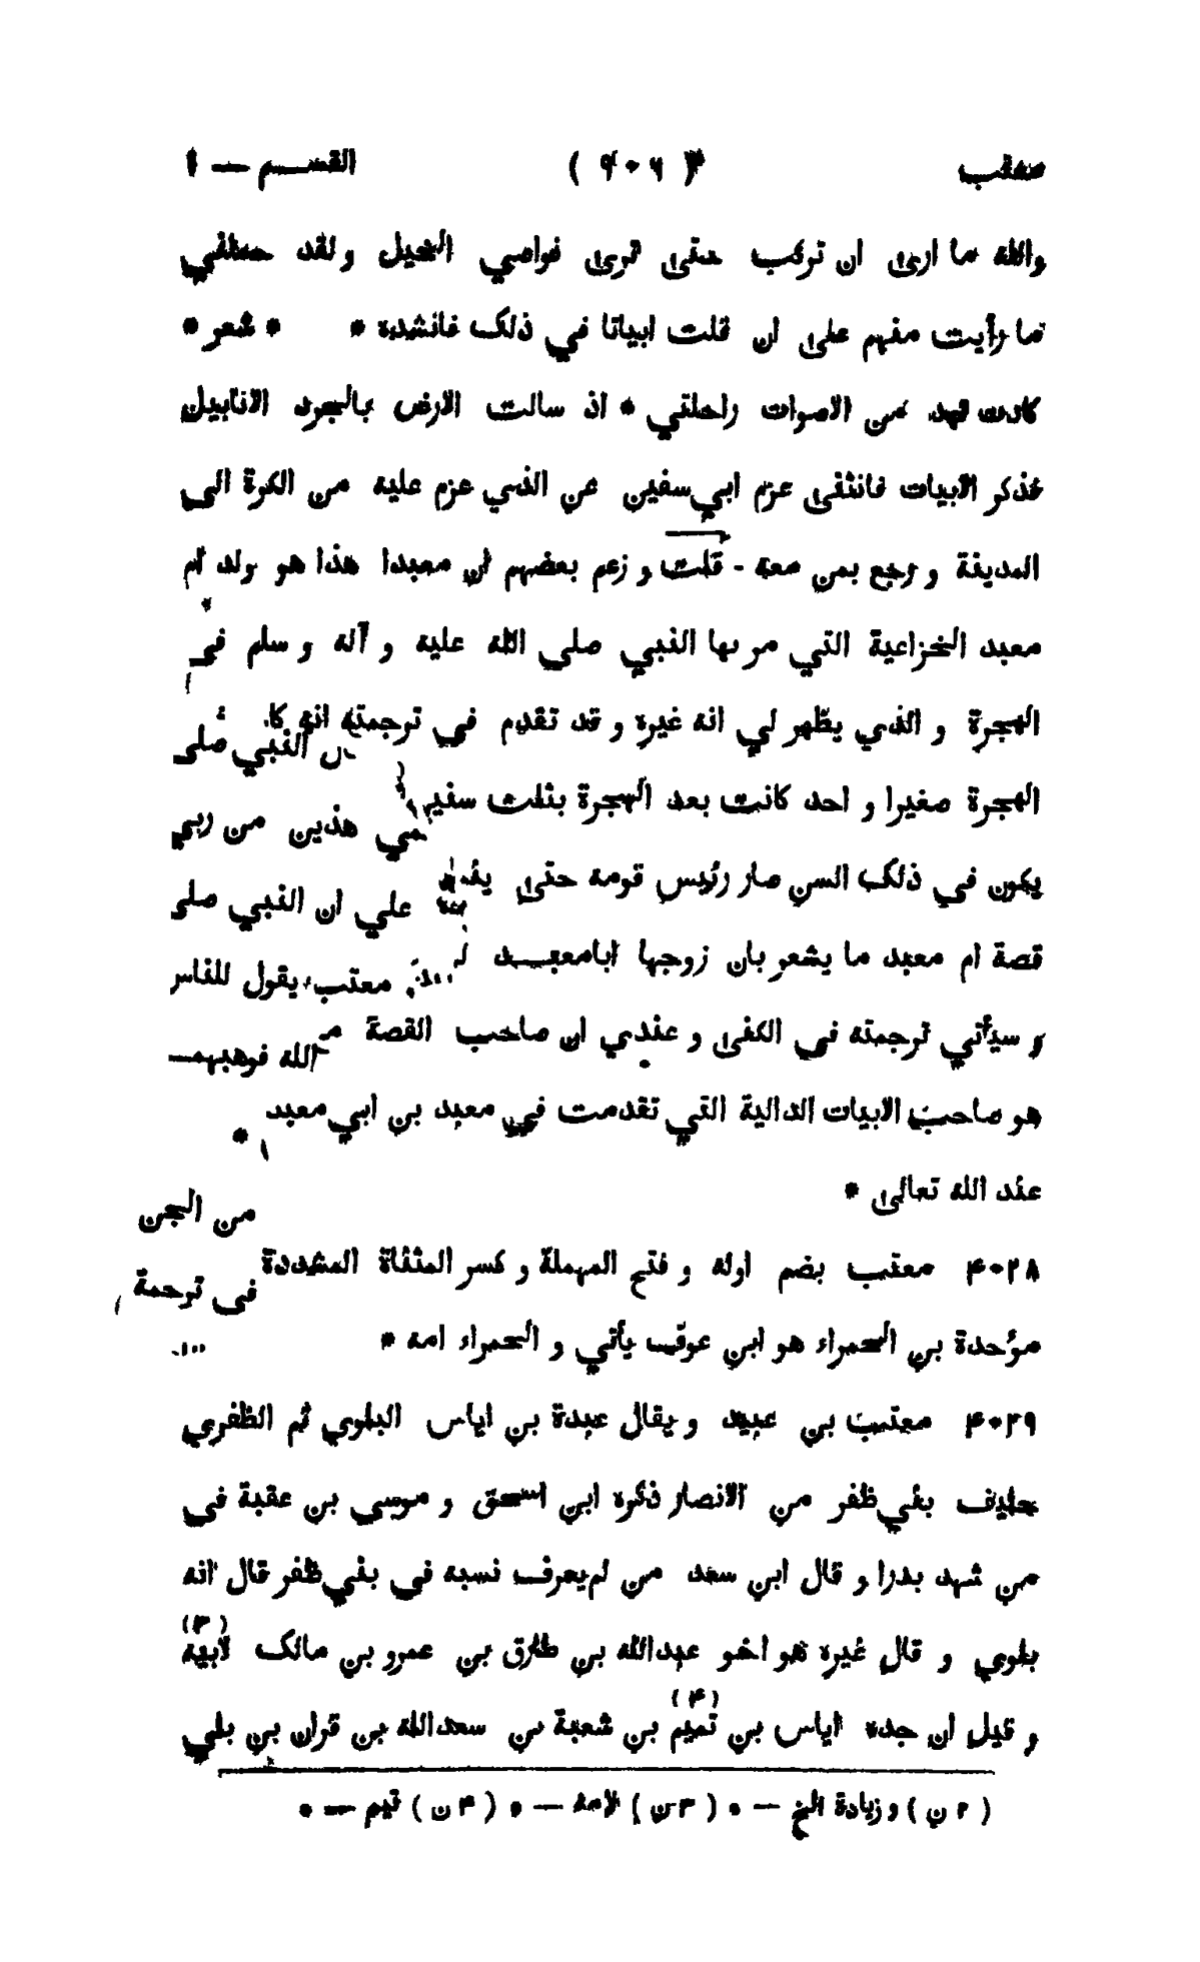 معتب ( ٩٠٦ ) القسم — ١
والله ما ارى ان تركب حتى ترى نواصي الخيل و لقد حملني
ما رأيت منهم على ان قلت ابياتا في ذلك فانشده * * شعر *
كادت تهد من الاصوات راحلتي * اذ سالت الارض بالجرد الابابيل
فذكر الابيات فانثنى عزم ابي سفين عن الذي عزم عليه من الكرة الى
المدينة و رجع بمن معه - قلت و زعم بعضهم ان معبدا هذا هو ولد ام
معبد الخزاعية التي مر بها النبي صلى الله عليه و آله و سلم في
الهجرة و الذي يظهر لي انه غيره و قد تقدم في ترجمته انه كا
النبي صلى
الهجرة صغيرا و احد كانت بعد الهجرة بثلث سنين
هذين من ربي
يكون في ذلك السن صار رئيس قومه حتى
علي ان النبي صلى
قصة ام معبد ما يشعر بان زوجها ابامعبد
معتب يقول للناس
و سيأتي ترجمته في الكنى و عندي ان صاحب القصة
الله فوهبهمـ
هو صاحب الابيات الدالية التي تقدمت في معبد بن ابي معبد
*
عند الله تعالى *
من الجن
٤٠٢٨ معتب بضم اوله و فتح المهملة و كسر المثناة المشددة
في ترجمة
مؤحدة بن الحمراء هو ابن عوف يأتي و الحمراء امه *
٤٠٢٩ معتب بن عبيد و يقال عبدة بن اياس البلوي ثم الظفري
حليف بني ظفر من الانصار ذكره ابن اسحق و موسى بن عقبة في
من شهد بدرا و قال ابن سعد من لم يعرف نسبه في بني ظفر قال انه
بلوي و قال غيره هو اخو عبدالله بن طارق بن عمرو بن مالك لابيه (٣)
و قيل ان جده اياس بن تميم (٤) بن شعبة بن سعدالله بن قران بن بلي
( ٢ ن ) و زيادة الخ — * ( ٣ ن ) لامه — * ( ٤ ن ) تيم — *